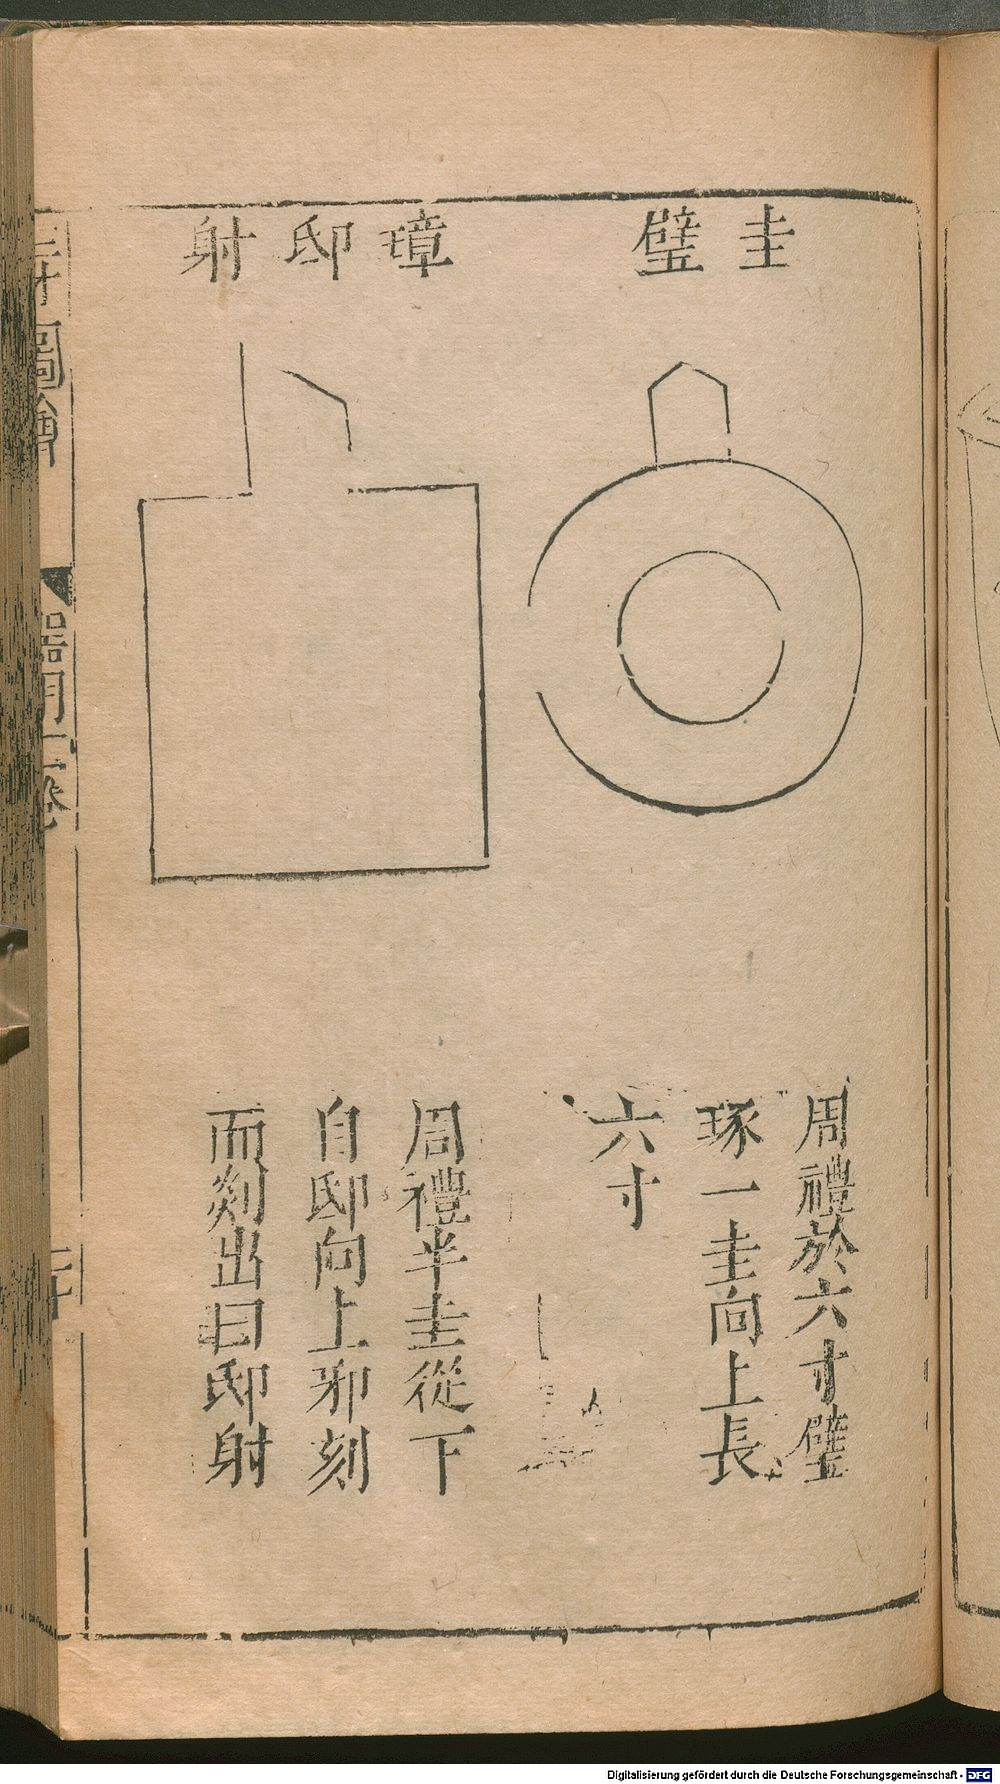 圭璧
周禮於六寸璧
琢一圭向上長
六寸
璋邸射
周禮半圭從下
自邸向上邪刻
而剡出曰邸射
圖會
器用二卷
Digitalisierung gefördert durch die Deutsche Forschungsgemeinschaft - DFG